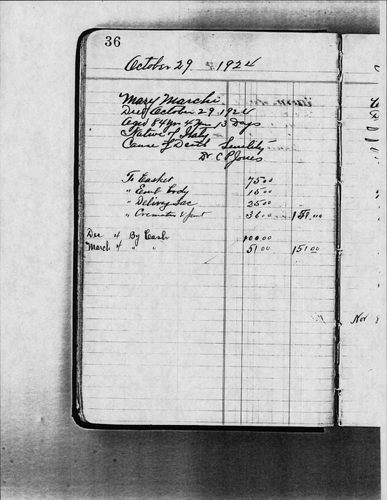 36
October 29 1924
Mary Marchi
Died October 29 1924
Aged 84 yrs 4 mos 13 Days
Native of Italy
Cause of Death Senility
Dr C P Jones
To Casket 75.00
" Emb body 15.00
" Delivery Sac 25.00
" Cremation & 36.00 151.00
Dec 4 By Cash 100.00
March 4 " " 51.00 151.00
Nov